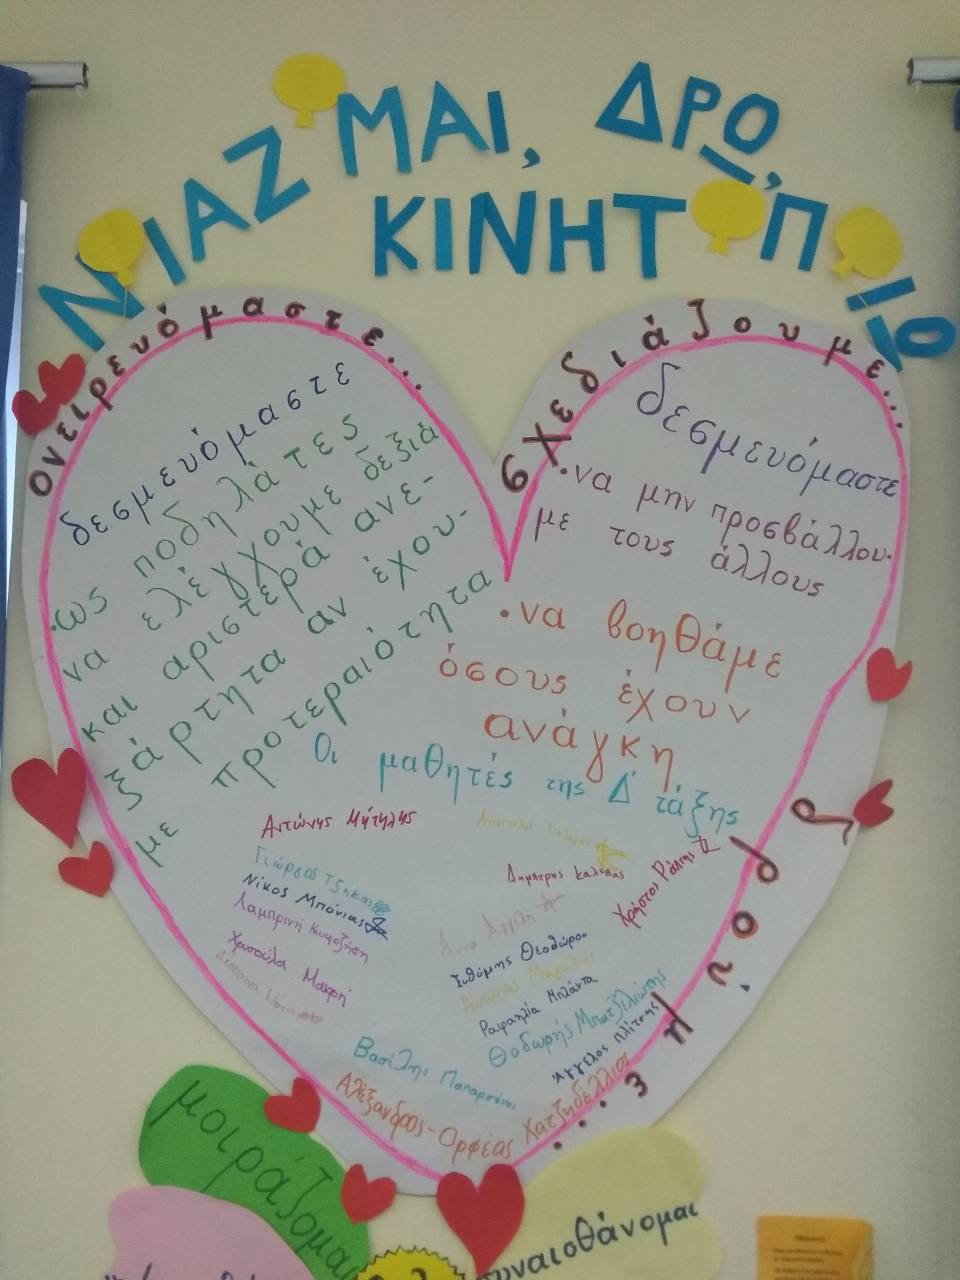 ΝΟΙΑΖΟΜΑΙ, ΔΡΩ,
ΚΙΝΗΤΟΠΟΙΩ
ονειρευόμαστε...
σχεδιάζουμε...
δρούμε...
δεσμευόμαστε
·ως ποδηλάτες
να ελέγχουμε δεξιά
και αριστερά ανε-
ξάρτητα αν έχου-
με προτεραιότητα
δεσμευόμαστε
·να μην προσβάλλου-
με τους άλλους
·να βοηθάμε
όσους έχουν
ανάγκη
Οι μαθητές της Δ' τάξης
Αντώνης Μήτηλης
Γιώργος Τζήκας
Νίκος Μπόνιας
Λαμπρινή
Χρυσούλα Μακρή
Δημήτρης
Χρήστος Ράπτης
Άννα Αγγέλη
Ευθύμης Θεοδώρου
Ραφαηλία Μπλάντα
Θοδωρής Μπατζιλιώτης
Άγγελος Πλίτσης
Βασίλης
Αλέξανδρος-Ορφέας Χατζηδέλλιος
μοιράζομαι
συναισθάνομαι